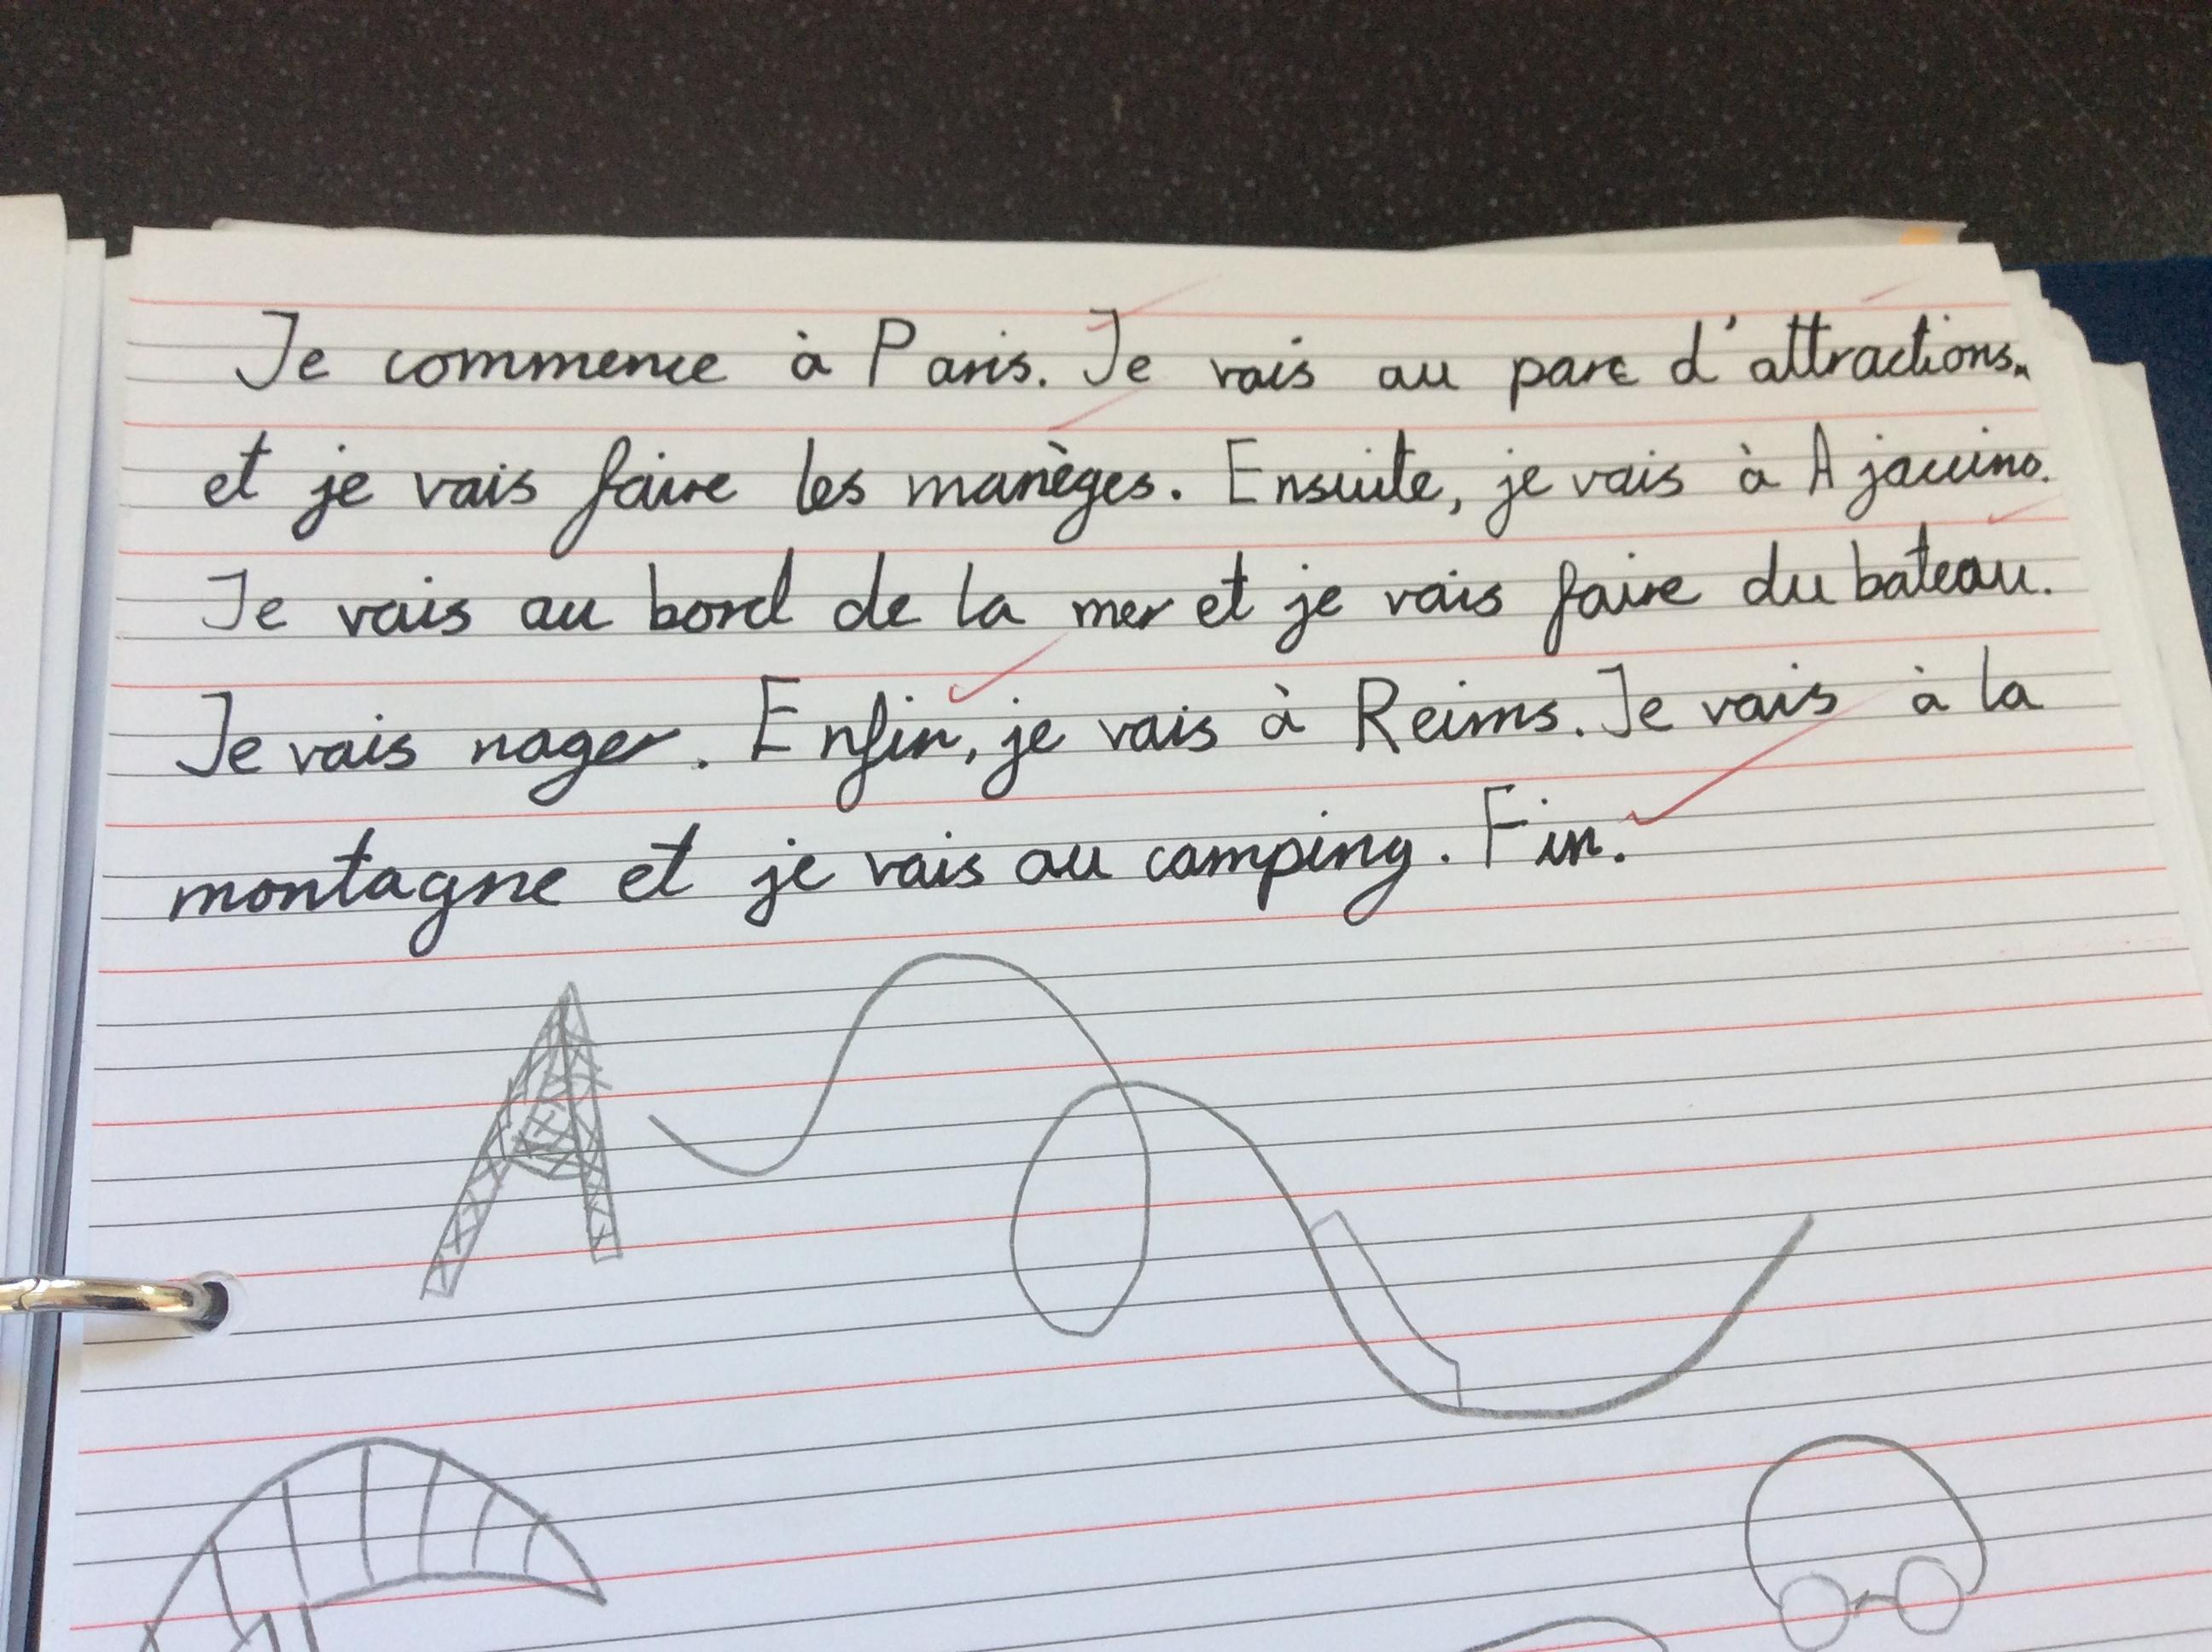 Je commence à Paris. Je vais au parc d'attractions.
et je vais faire les manèges. Ensuite, je vais à Ajaccino.
Je vais au bord de la mer et je vais faire du bateau.
Je vais nager. Enfin, je vais à Reims. Je vais à la
montagne et je vais au camping. Fin.